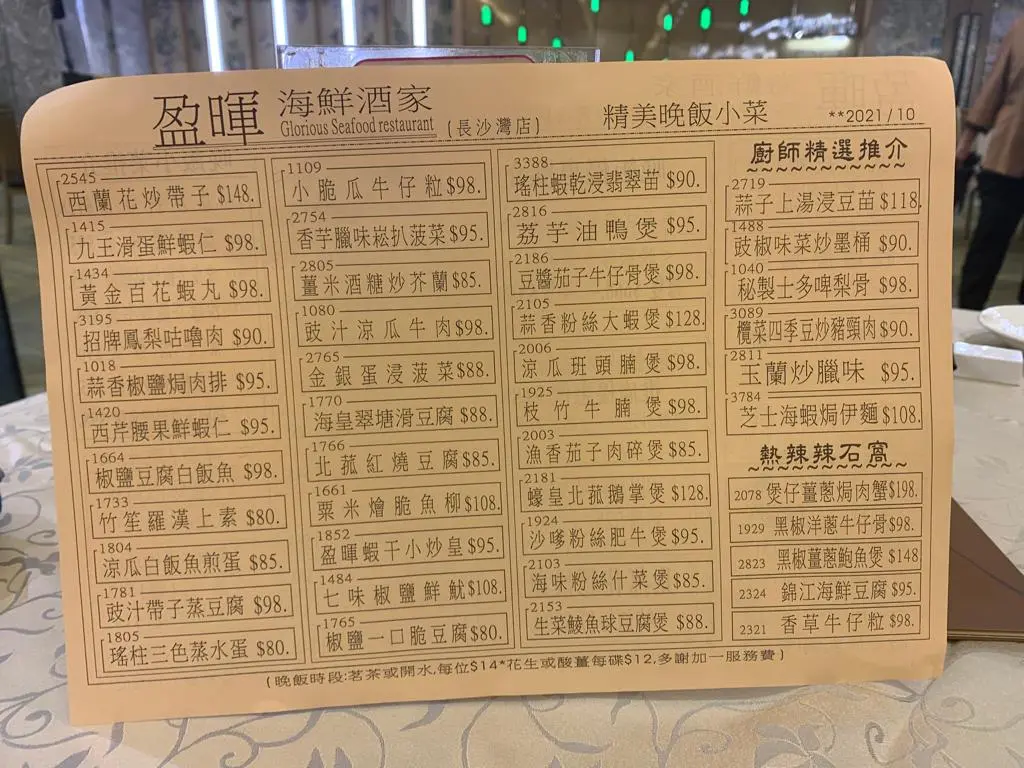 盈暉 海鮮酒家
Glorious Seafood restaurant
(長沙灣店)
精美晚飯小菜
**2021/10
2545
西蘭花炒帶子 $148.
1415
九王滑蛋鮮蝦仁 $98.
1434
黃金百花蝦丸 $98.
3195
招牌鳳梨咕嚕肉 $90.
1018
蒜香椒鹽焗肉排 $95.
1420
西芹腰果鮮蝦仁 $95.
1664
椒鹽豆腐白飯魚 $98.
1733
竹笙羅漢上素 $80.
1804
涼瓜白飯魚煎蛋 $85.
1781
豉汁帶子蒸豆腐 $98.
1805
瑤柱三色蒸水蛋 $80.
1109
小脆瓜牛仔粒 $98.
2754
香芋臘味崧扒菠菜 $95.
2805
薑米酒糖炒芥蘭 $85.
1080
豉汁涼瓜牛肉 $98.
2765
金銀蛋浸菠菜 $88.
1770
海皇翠塘滑豆腐 $88.
1766
北菰紅燒豆腐 $85.
1661
粟米燴脆魚柳 $108.
1852
盈暉蝦干小炒皇 $95.
1484
七味椒鹽鮮魷 $108.
1765
椒鹽一口脆豆腐 $80.
3388
瑤柱蝦乾浸翡翠苗 $90.
2816
荔芋油鴨煲 $95.
2186
豆醬茄子牛仔骨煲 $98.
2105
蒜香粉絲大蝦煲 $128.
2006
涼瓜班頭腩煲 $98.
1925
枝竹牛腩煲 $98.
2003
漁香茄子肉碎煲 $85.
2181
蠔皇北菰鵝掌煲 $128.
1924
沙嗲粉絲肥牛煲 $95.
2103
海味粉絲什菜煲 $85.
2153
生菜鯪魚球豆腐煲 $88.
廚師精選推介
2719
蒜子上湯浸豆苗 $118.
1488
豉椒味菜炒墨桶 $90.
1040
秘製士多啤梨骨 $98.
3089
欖菜四季豆炒豬頸肉 $90.
2811
玉蘭炒臘味 $95.
3784
芝士海蝦焗伊麵 $108.
熱辣辣石窩
2078 煲仔薑蔥焗肉蟹 $198.
1929 黑椒洋蔥牛仔骨 $98.
2823 黑椒薑蔥鮑魚煲 $148
2324 錦江海鮮豆腐 $95.
2321 香草牛仔粒 $98.
(晚飯時段:茗茶或開水,每位$14*花生或酸薑每碟$12,多謝加一服務費)